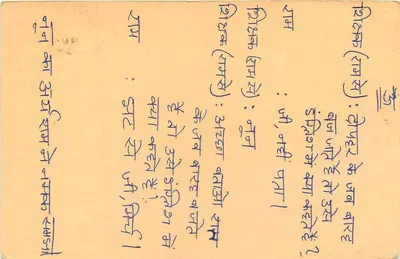 शिक्षक (राम से) : दोपहर के जब बारह
बज जाते हैं तो उसे
इंग्लिश में क्या कहते हैं?
राम : जी, नहीं पता।
शिक्षक (राम से) : नून
शिक्षक (राम से) : अच्छा बताओ शाम
के जब बारह बजते
हैं तो उसे इंग्लिश में
क्या कहते हैं?
राम : झट से जी, मिर्च।
नून का अर्थ राम ने नमक समझा।